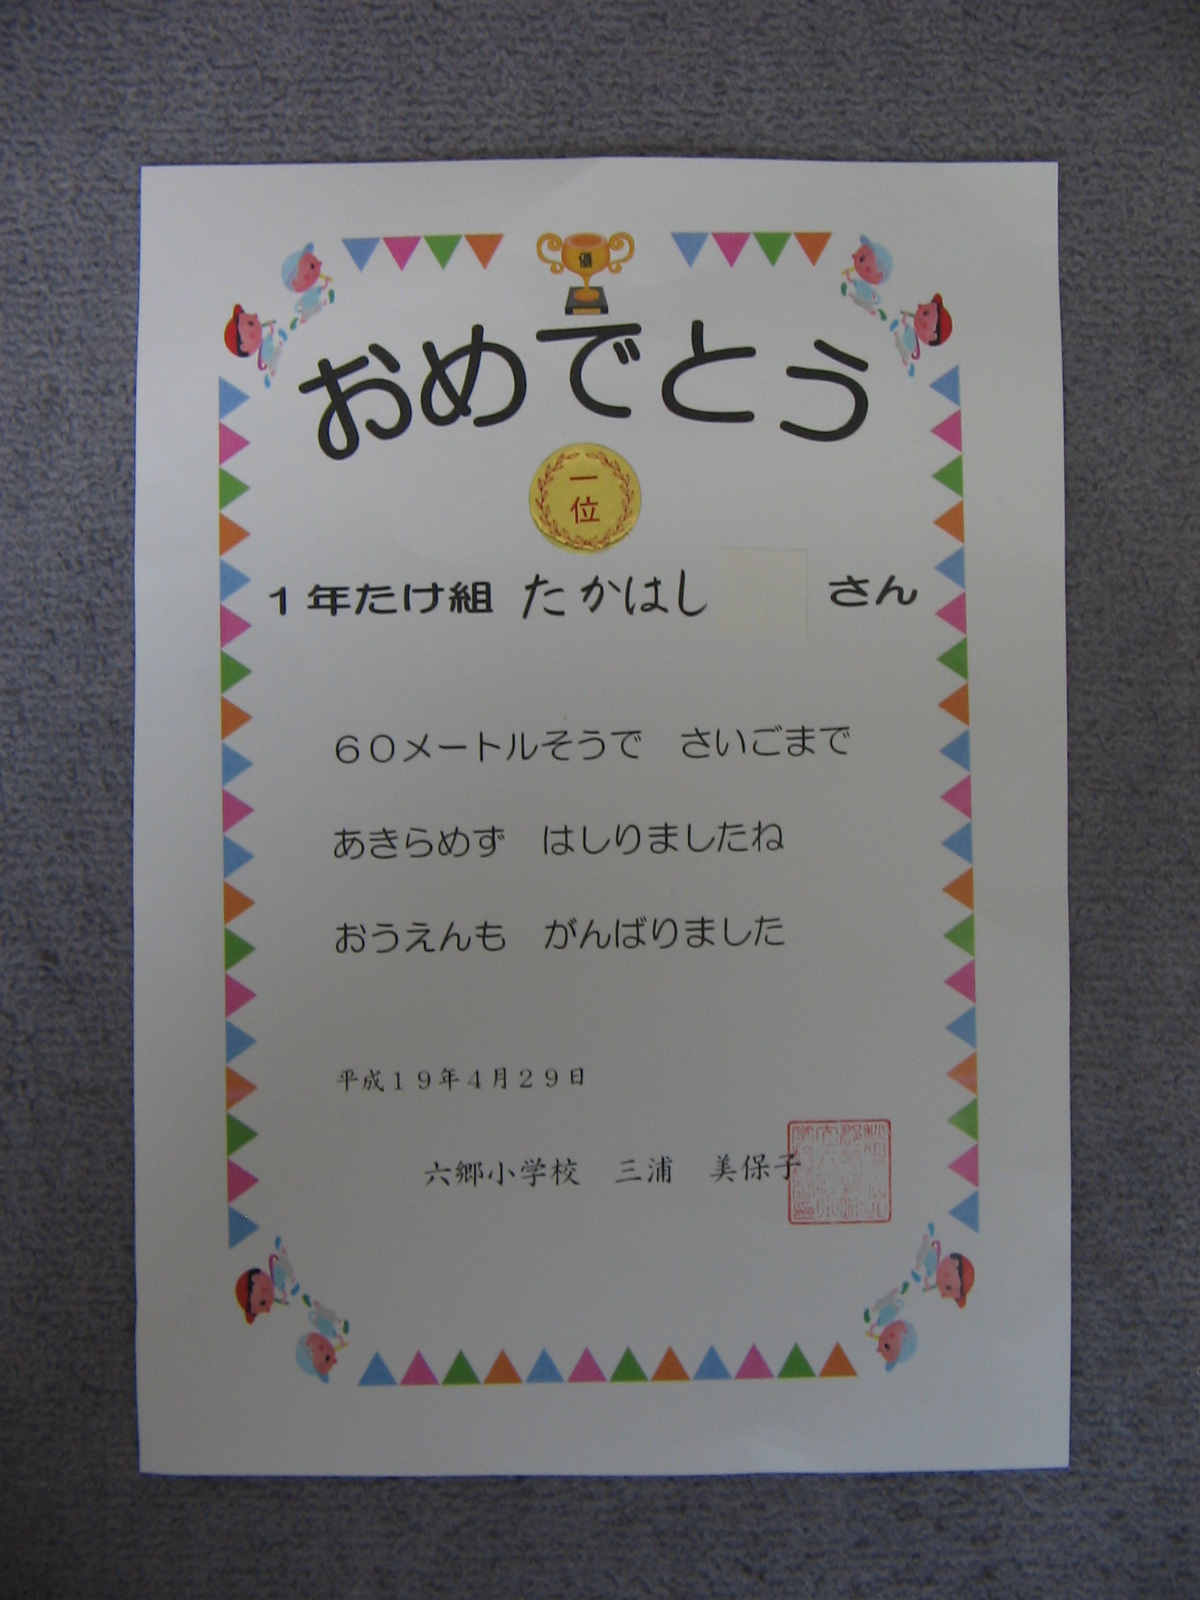 おめでとう
一
位
1年たけ組 たかはし さん
60メートルそうで さいごまで
あきらめず はしりましたね
おうえんも がんばりました
平成19年4月29日
六郷小学校 三浦 美保子